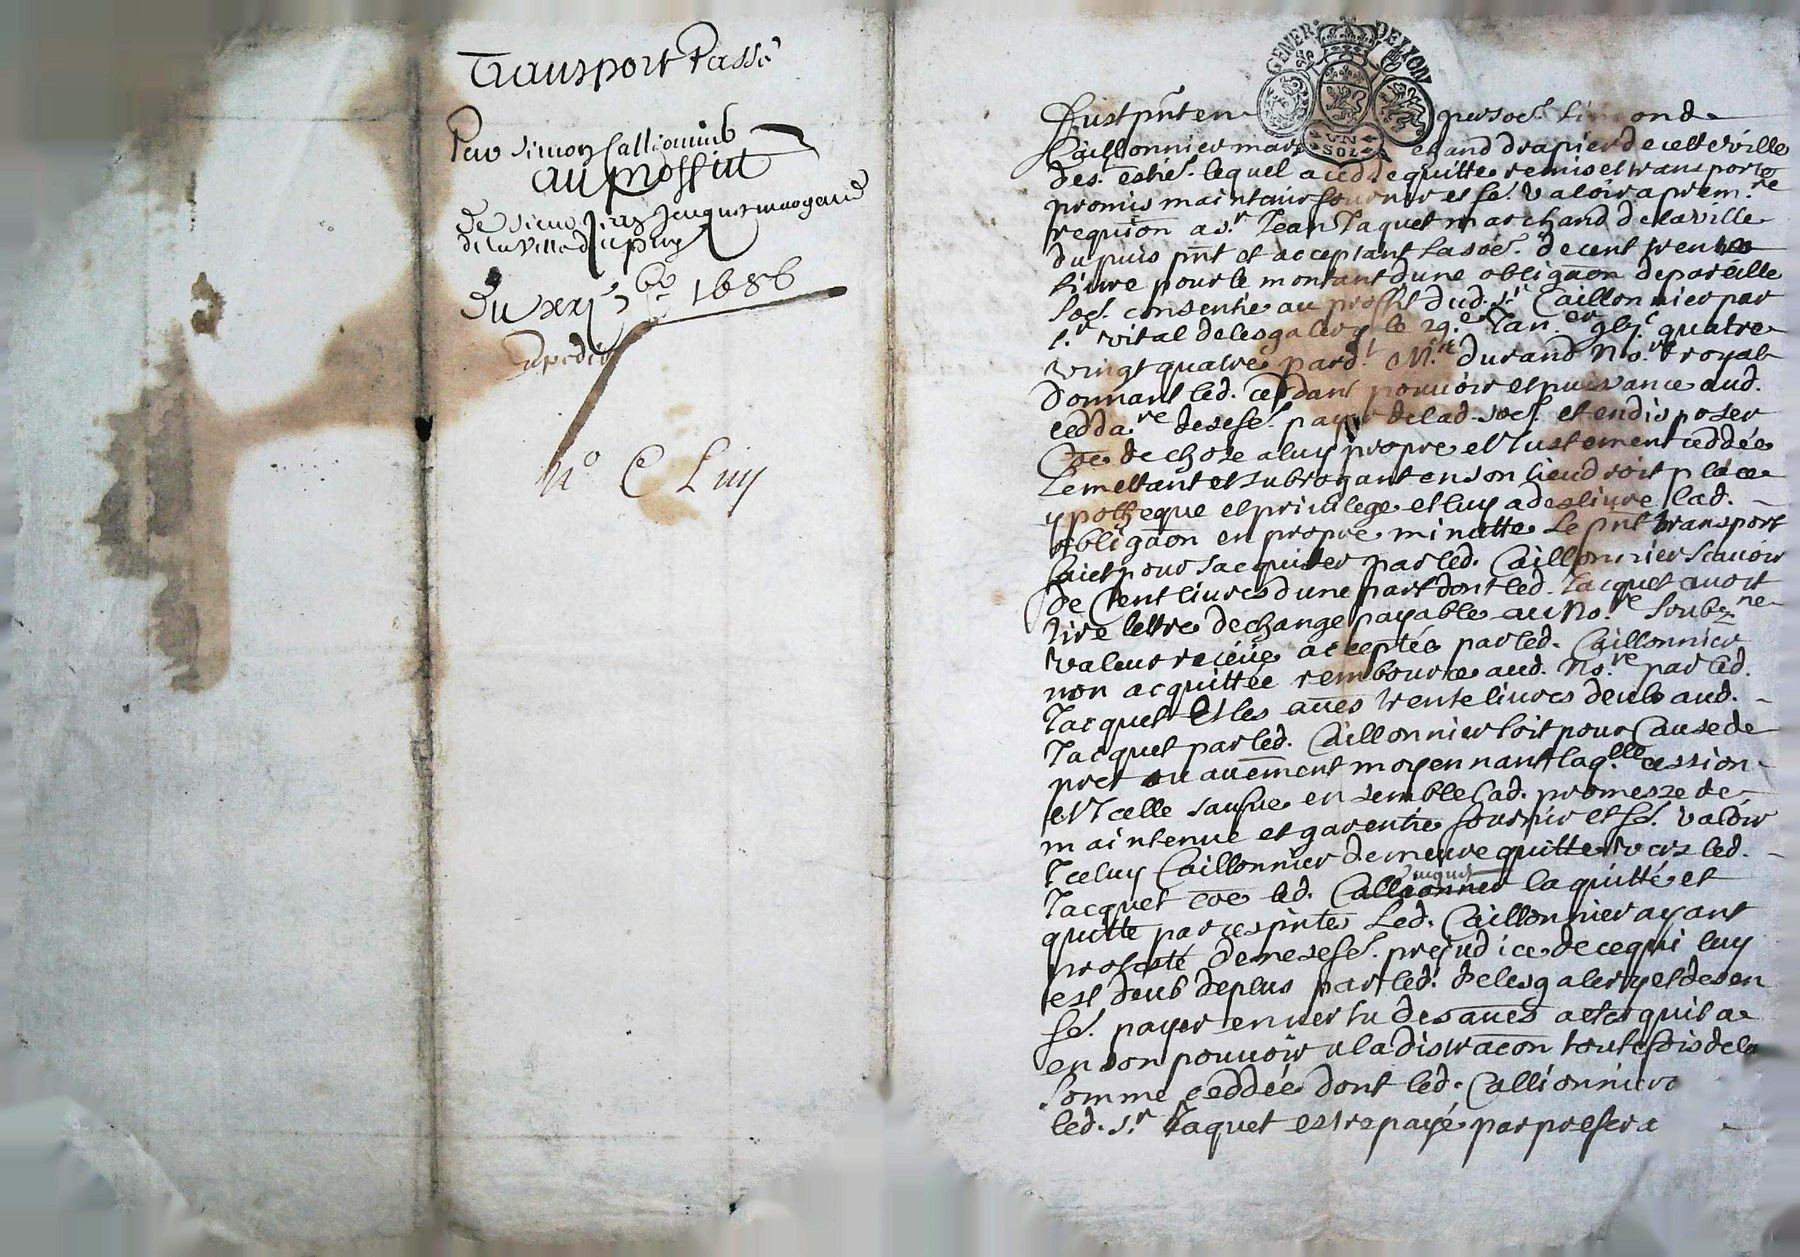 Transport Passé
Par Simon Callionnid
au proffit
De sieur Jean Jaquet marchand
de la ville du puy
Du xxj 1686
Expedié
N.º C Luy
GENER. DE LION
UN
SOL
Fust pñt en persoñ. Simond
Caillonnier marchand drapier de cette ville
des. estie. lequel a cedde quitte remis et transporte
promis maintenir fournir et fe. valoir a prem.re
requion a s.r Jean Jaquet marchand de la ville
du puis pñt et acceptant la soe. de cent trente
livre pour le montant dune obligaon de pareille
soe. consentie au proffit dud. s.r Caillonnier par
s.r vital delesgalery le 29.e Jan.er gbj.c quatre
vingt quatre pard.t M.re durand No.re royal
Donnant led. ceddant pouvoir et puissance aud.
cedda.re de se fe. payer de lad. soe. et en disposer
Coe de chose a luy propre et Justement ceddée
Le mettant et subrogant en son lieu droit place
ypotheque et privilege et luy a deslivre lad.
obligaon en propre minutte Le pñt transport
faict pour sacquiter par led. Caillonnier scavoir
de Cent livres dune part dont led. Jacquet avoit
tire lettre de change payable au No.re soubz.ne
valeur receüe acceptée par led. Caillonnier
non acquittée rembource aud. No.re par led.
Jacquet Et les aües trente livres deub aud.
Jacquet par led. Caillonnier soit pour Cause de
pret ou auement moyennant laq.lle cession
et Icelle saufve ensemble lad. promesse de
maintenue et garentie fournir et fe. valoir
Iceluy Caillonnier demeure quitte vers led.
Jacquet coe led. Callionner Jaquet la quitté et
quitte par ces pñtes Led. Caillonnier ayant
protesté de ne se fe. prejudice de ce qui luy
est deub de plus par led. delesgalery et de sen
fe. payer en vertu des aües actes quil a
en son pouvoir a la distraction toutesfois de la
somme ceddée dont led. Callionnier
led. s.r Jaquet est repayé par prefera